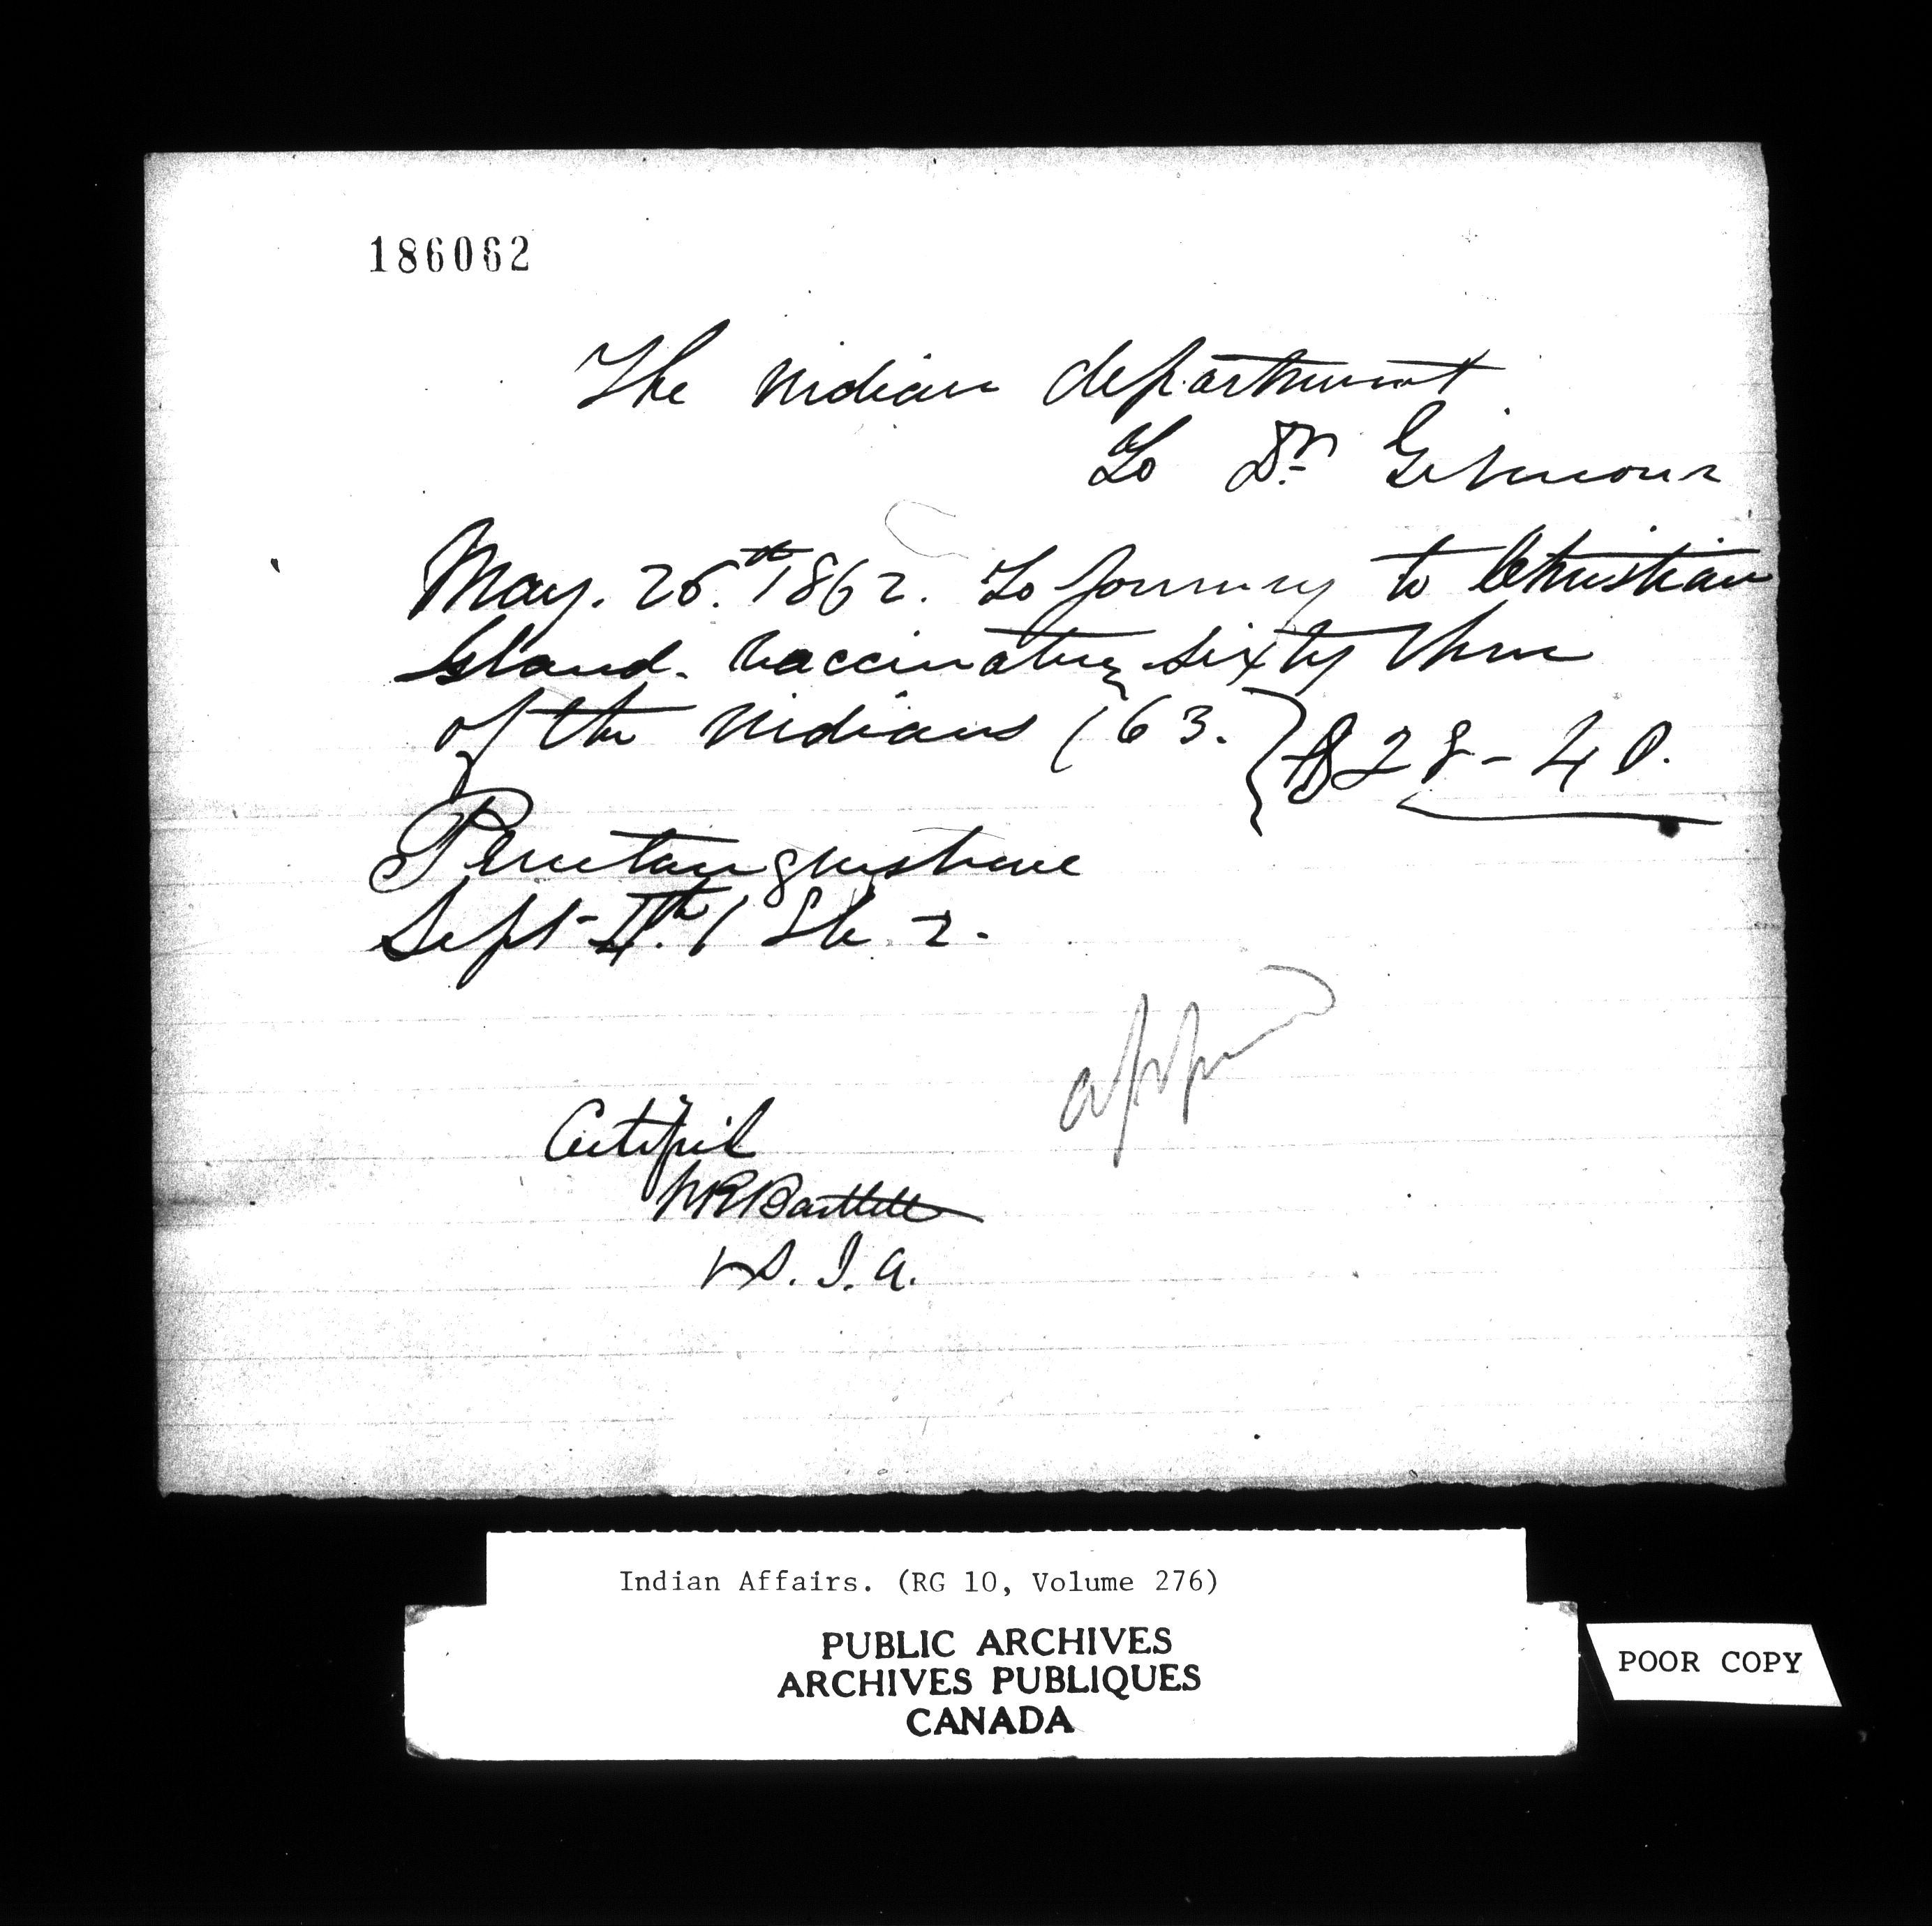 186062
The Indian department
To Dr Gilmour
May. 26.th 1862. To Journey to Christian
Island. Vaccinating sixty three
of the Indians (63.} $28-40.
Penetanguishene
Sept 4th. 1862.
Certified
WRBartlett
V.S.I.A.
Indian Affairs. (RG 10, Volume 276)
PUBLIC ARCHIVES
ARCHIVES PUBLIQUES
CANADA
POOR COPY